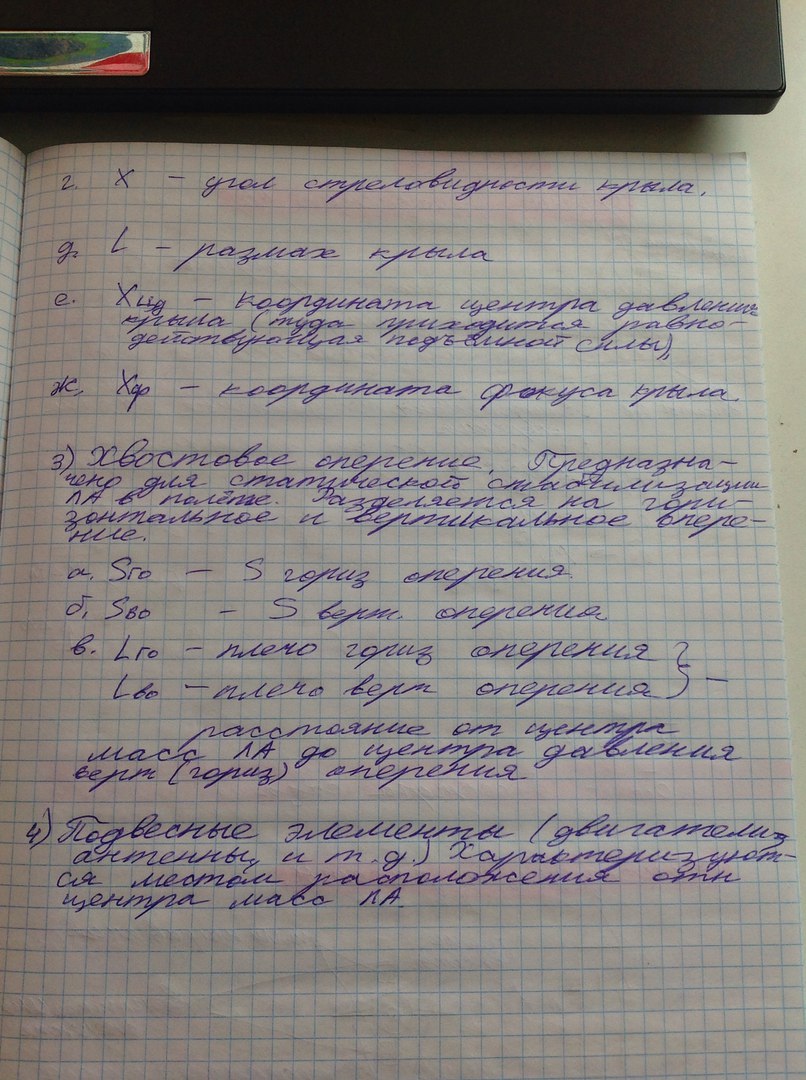 г. X – угол стреловидности крыла.
д. L – размах крыла
е. Xцд – координата центра давления
крыла (туда приходится равно-
действующая подъёмной силы),
ж. Xф – координата фокуса крыла.
3) Хвостовое оперение. Предназна-
чено для статической стабилизации
ЛА в полёте. Разделяется на гори-
зонтальное и вертикальное опере-
ние.
а. Sго – S гориз оперения.
б. Sво – S верт. оперения
в. Lго – плечо гориз оперения }
Lво – плечо верт оперения } –
расстояние от центра
масс ЛА до центра давления
верт (гориз) оперения
4) Подвесные элементы (двигатели,
антенны, и т.д.) Характеризуют-
ся местом расположения отн
центра масс ЛА.